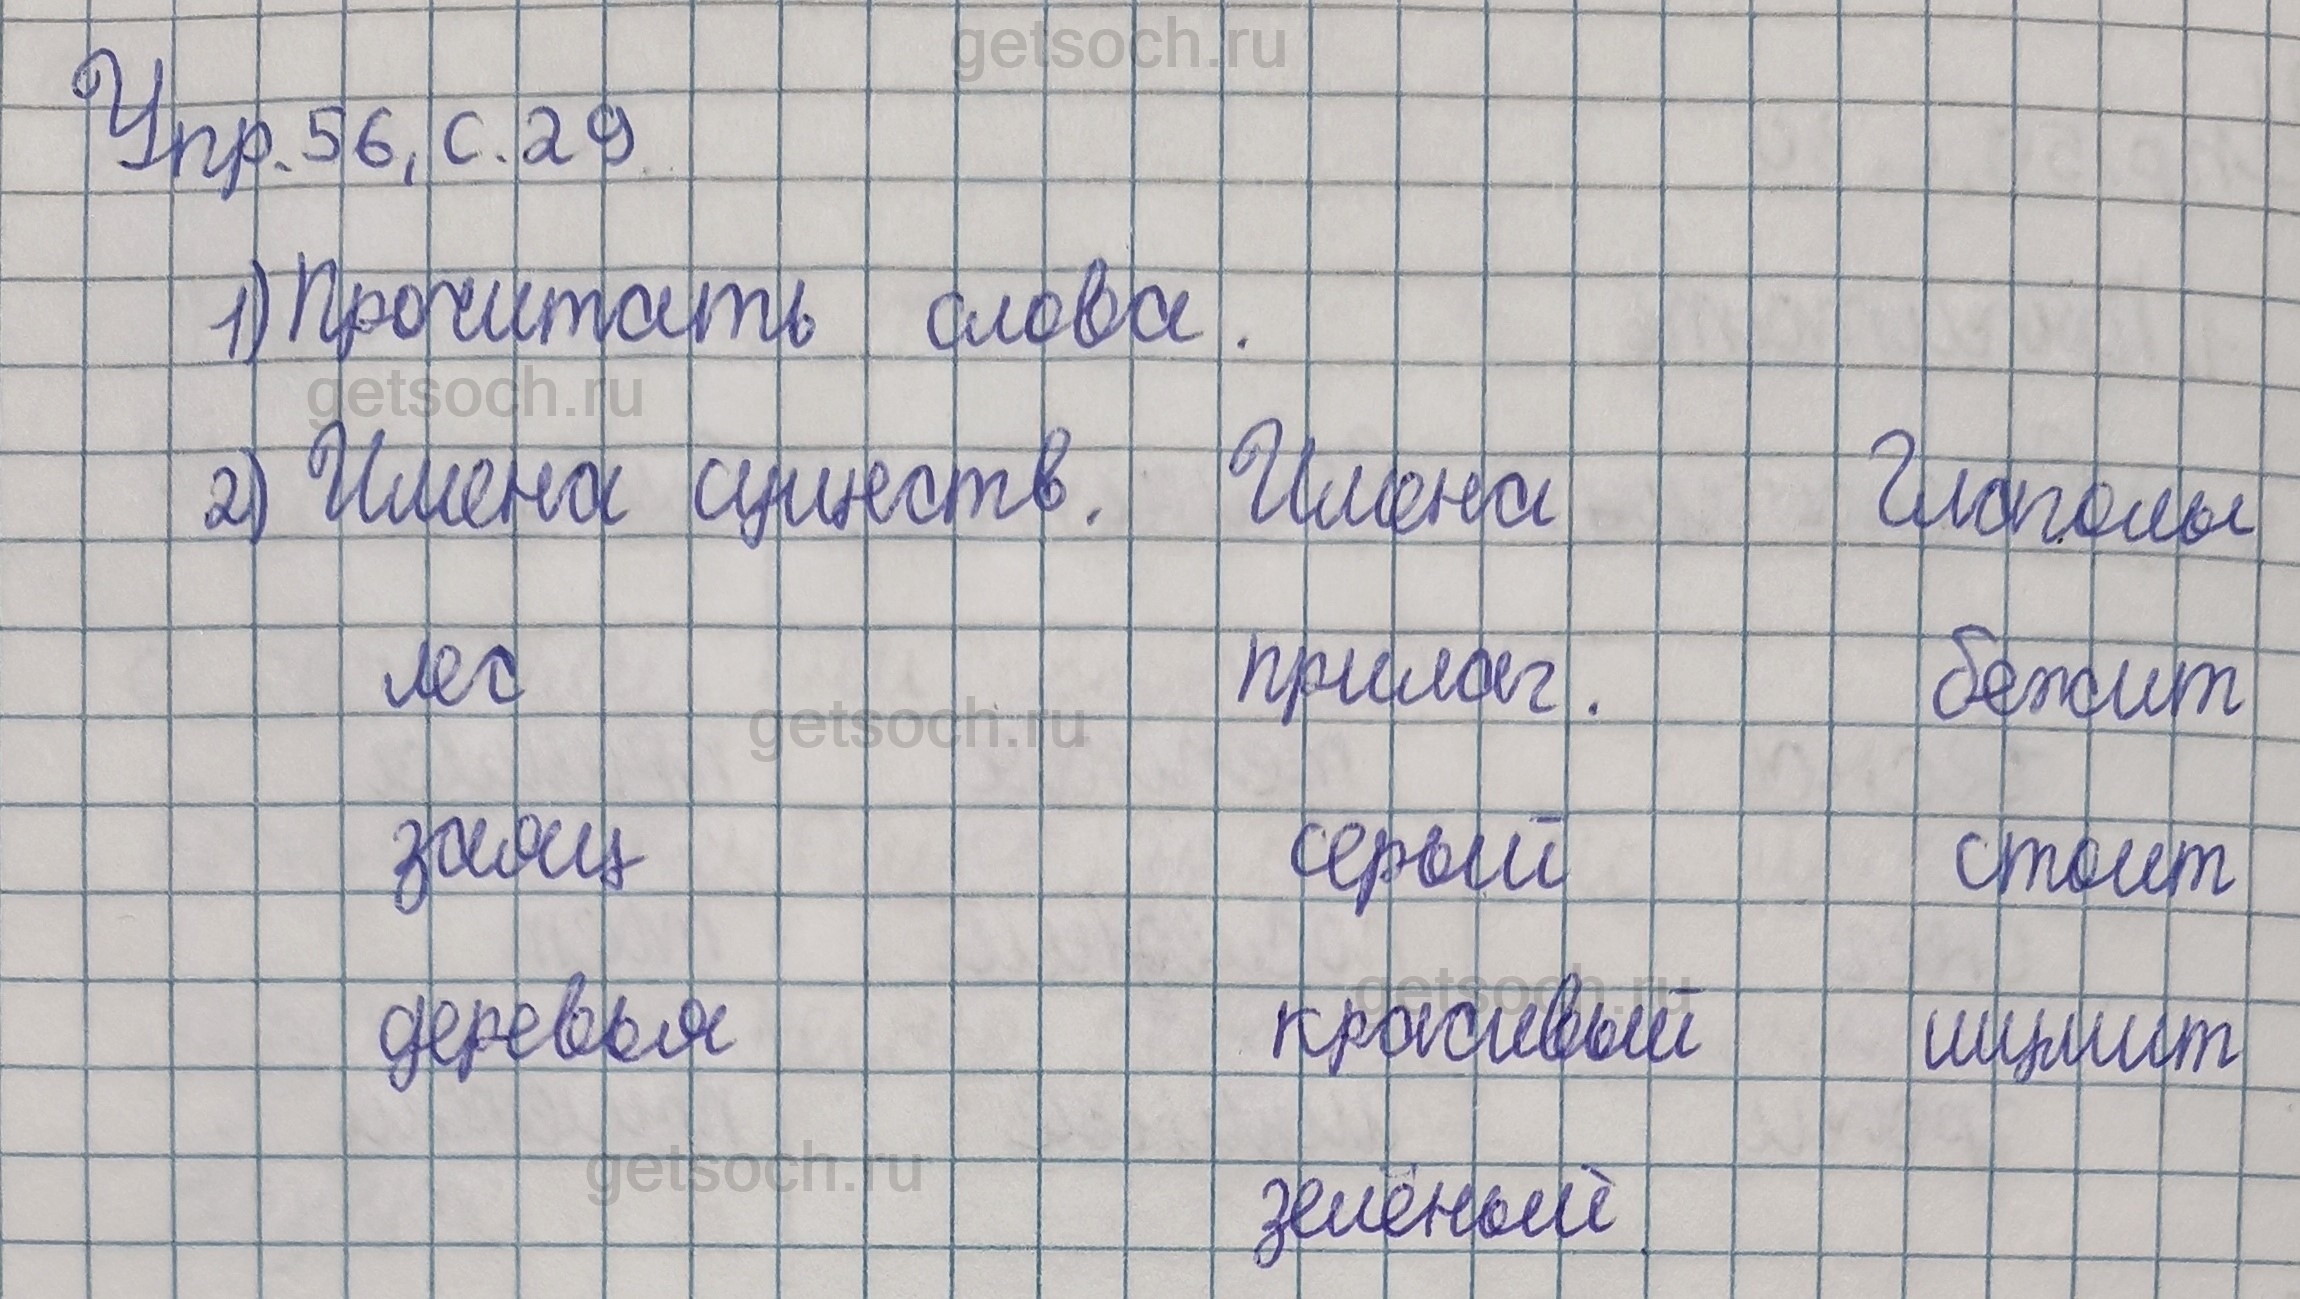 getsoch.ru
Упр. 56, с. 29
1) Прочитать слова.
getsoch.ru
2) Имена существ. Имена Глаголы
лес прилаг. бежит
getsoch.ru
заяц серый стоит
getsoch.ru
деревья красивый шумит
getsoch.ru
зелёный